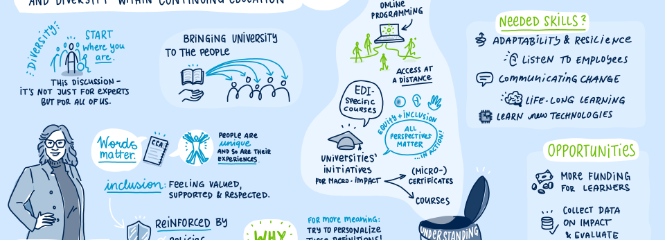 AND DIVERSITY WITHIN CONTINUING EDUCATION
DIVERSITY:
START
where you
are.
THIS DISCUSSION -
IT'S NOT JUST FOR EXPERTS
BUT FOR ALL OF US.
BRINGING UNIVERSITY
TO THE PEOPLE
Words
matter.
PEOPLE ARE
unique
AND SO ARE THEIR
EXPERIENCES
inclusion: FEELING VALUED,
SUPPORTED & RESPECTED.
REINFORCED BY
WHY
FOR MORE MEANING:
TRY TO PERSONALIZE
THESE DEFINITIONS!
ONLINE
PROGRAMMING
ACCESS AT
A DISTANCE
EDI-
SPECIFIC
COURSES
EQUITY + INCLUSION
ALL
PERSPECTIVES
MATTER
...IN ACTION!
UNIVERSITIES'
INITIATIVES
FOR MACRO-IMPACT
(MICRO-)
CERTIFICATES
COURSES
UNDERSTANDING
NEEDED SKILLS?
ADAPTABILITY & RESILIENCE
LISTEN TO EMPLOYEES
COMMUNICATING CHANGE
LIFE-LONG LEARNING
LEARN new TECHNOLOGIES
OPPORTUNITIES
MORE FUNDING
FOR LEARNERS
COLLECT DATA
ON IMPACT
& EVALUATE